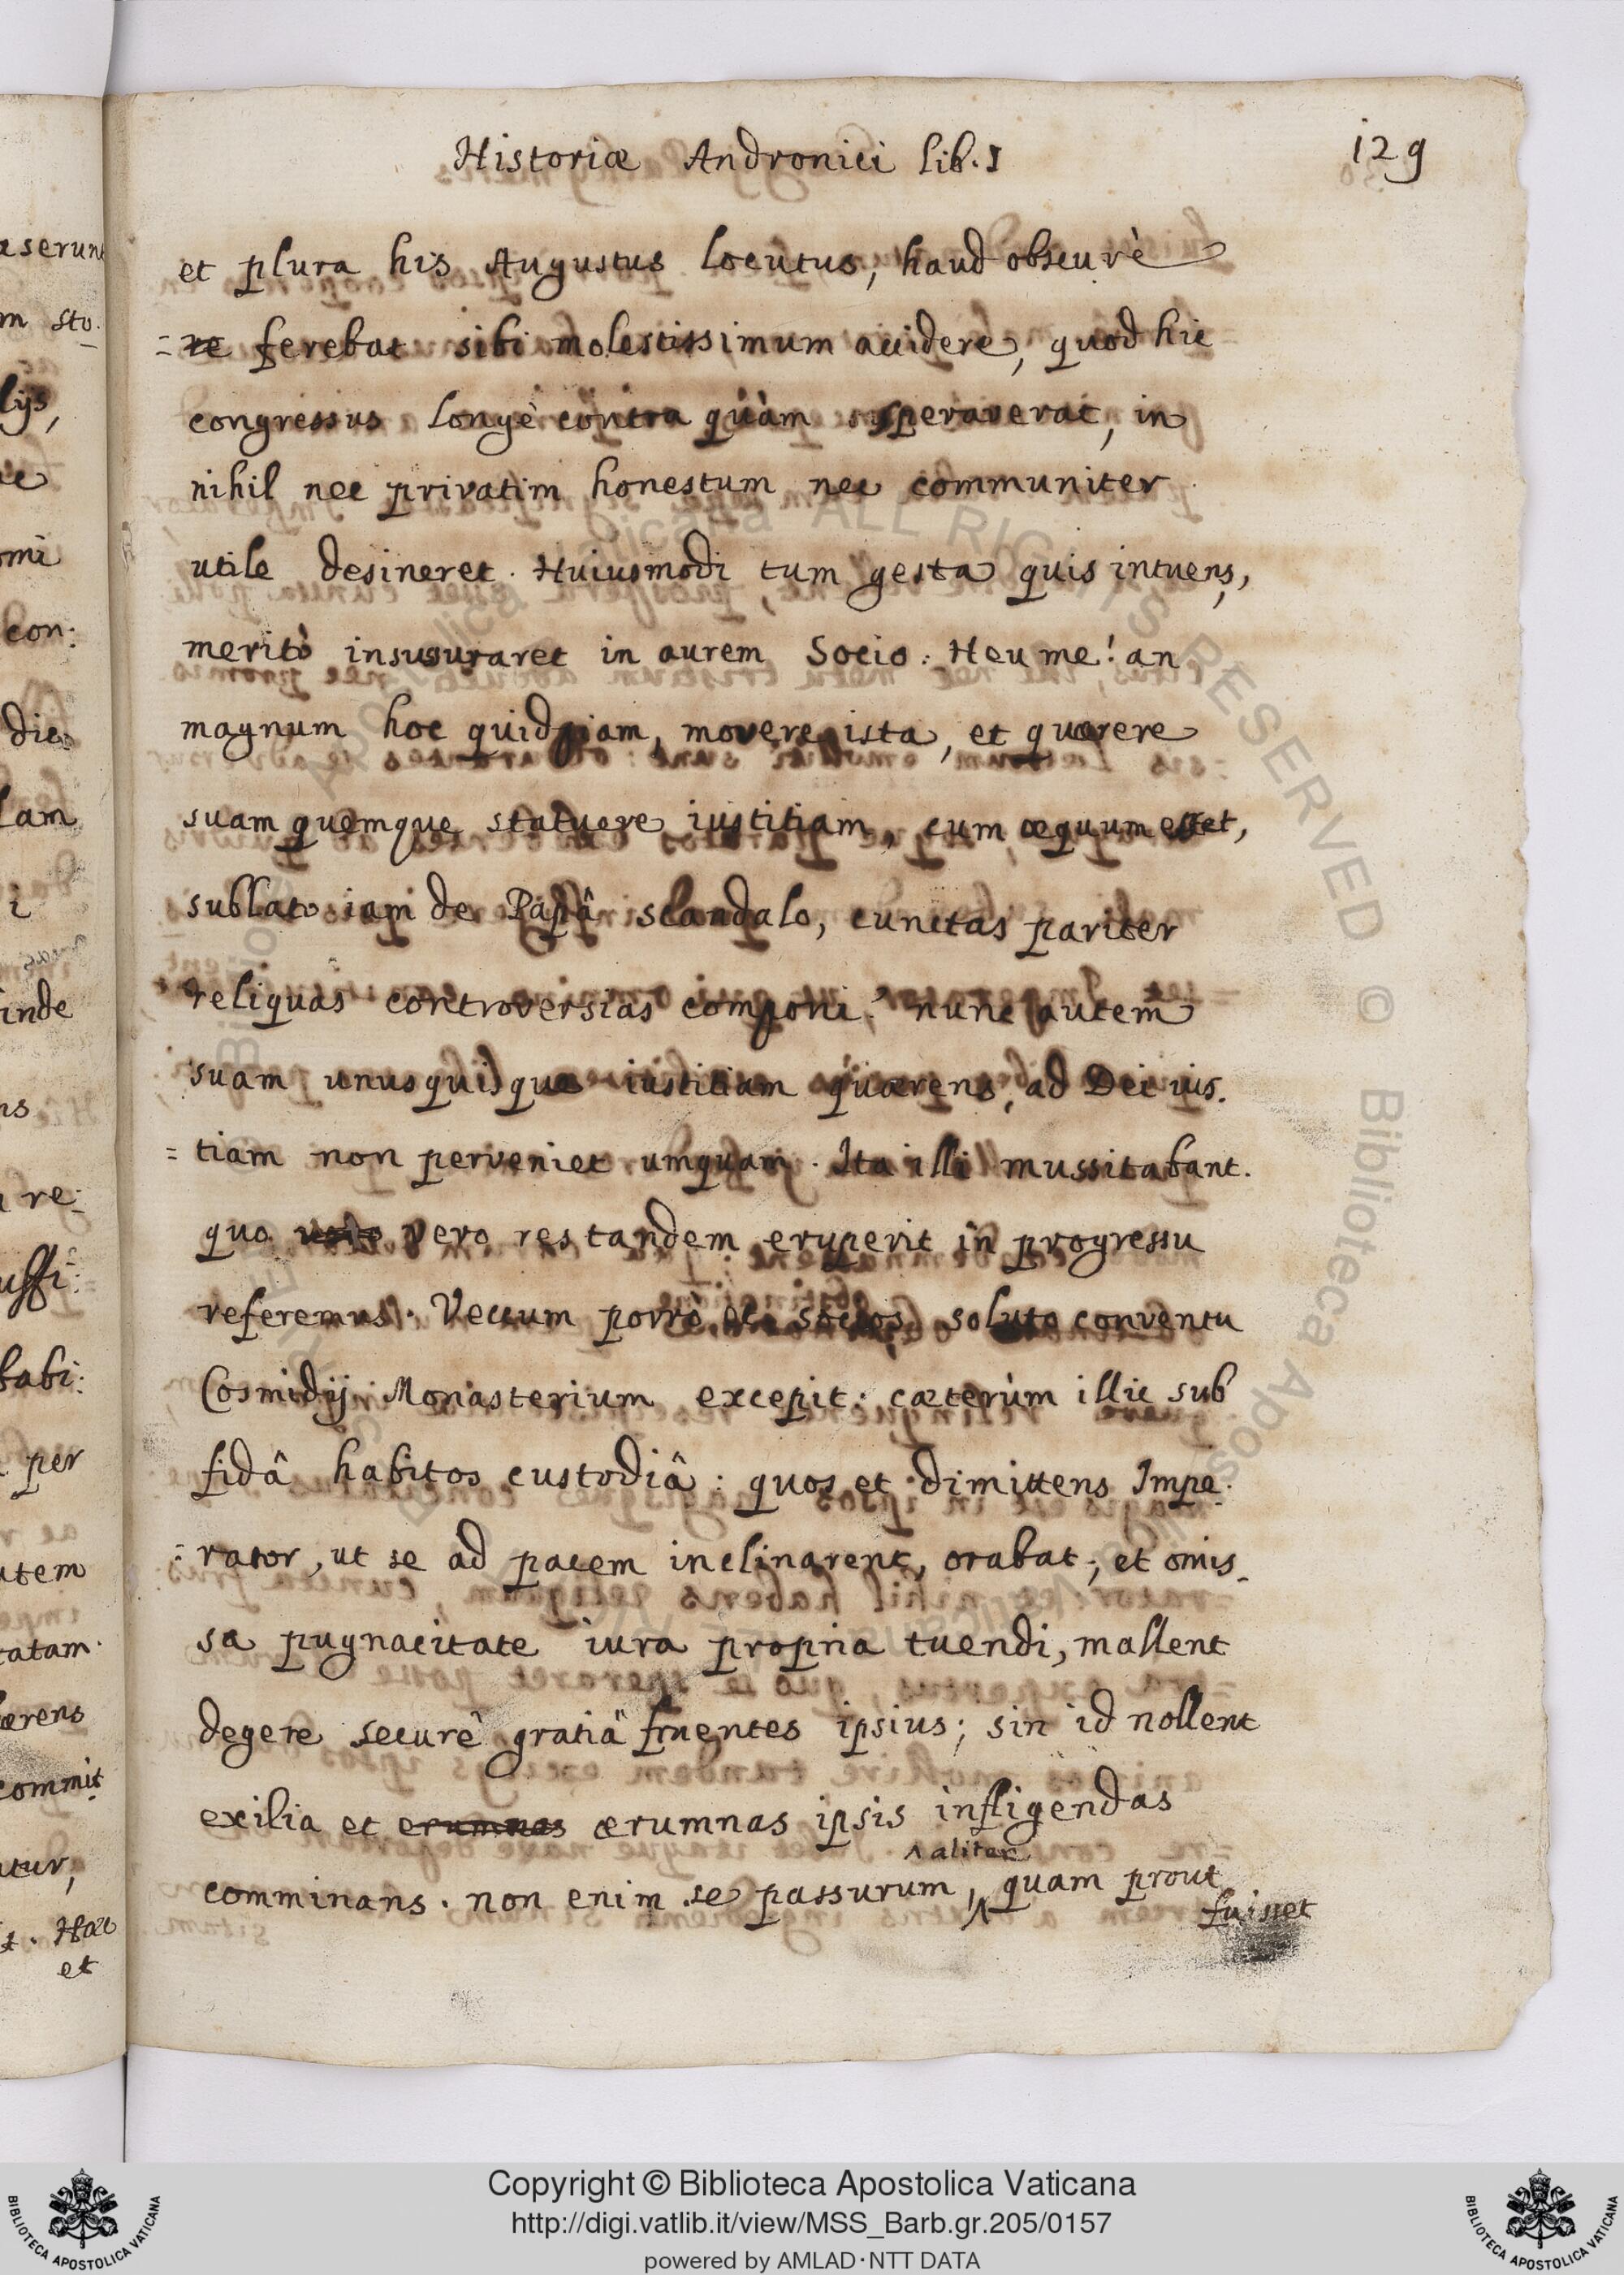 Historiæ Andronici lib. I
129
et plura his Augustus locutus, haud obscurè
= re ferebat sibi molestissimum accidere, quod hic
congressus longè contra quàm speraverat, in
nihil nec privatim honestum nec communiter
utile desineret. Huiusmodi tum gesta quis intuens,
meritò insusuraret in aurem Socio: Heu me! an
magnum hoc quidpiam, movere ista, et quærere
suam quemque statuere iustitiam, cum æquum esset,
sublato iam de Papâ scandalo, cunctas pariter
reliquas controversias componi? nunc autem
suam unusquisque iustitiam quærens, ad Dei ius.
= tiam non perveniet umquam. Ita illi mussitabant.
quo vero res tandem eruperit in progressu
referemus. Veccum porrò et socios, soluto conventu
Cosmidij Monasterium excepit: cæterùm illic sub
fidâ habitos custodiâ: quos et dimittens Impe:
= rator, ut se ad pacem inclinarent, orabat; et omis_
sa pugnacitate iura propria tuendi, mallent
degere securè gratiâ fruentes ipsius; sin id nollent
exilia et erumnas ærumnas ipsis infligendas
aliter
comminans. non enim se passurum, quam prout
fuisset
aserunt
m sto.
lijs,
omi
con:
die:
lam
i
inde
ns
re:
uffi:
babi:
per
utem
tatam.
ærens
commit
atur,
Hæc
et
Copyright © Biblioteca Apostolica Vaticana
http://digi.vatlib.it/view/MSS_Barb.gr.205/0157
powered by AMLAD·NTT DATA
BIBLIOTECA APOSTOLICA VATICANA
BIBLIOTECA APOSTOLICA VATICANA